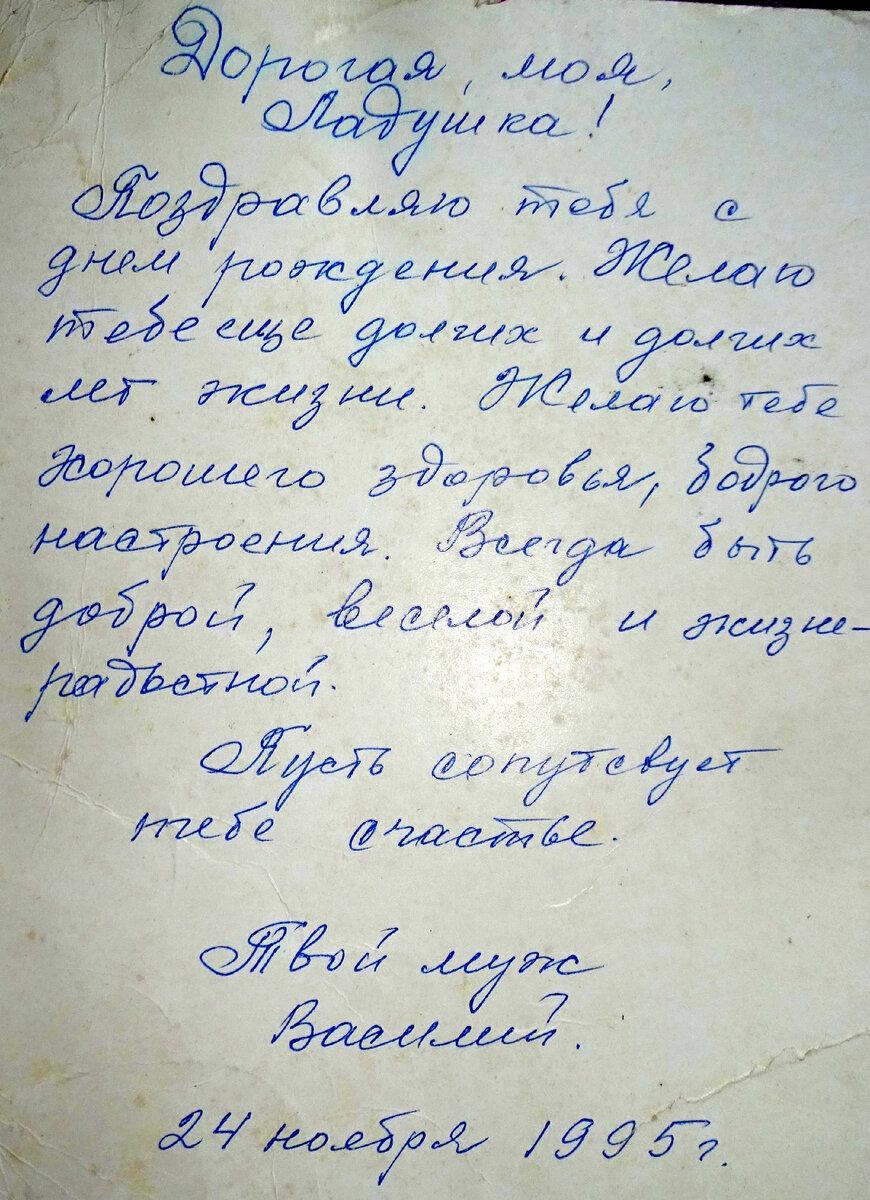 Дорогая, моя,
Ладушка!
Поздравляю тебя с
днем рождения. Желаю
тебе еще долгих и долгих
лет жизни. Желаю тебе
хорошего здоровья, бодрого
настроения. Всегда быть
доброй, веселой и жизне-
радостной.
Пусть сопутсвует
тебе счастье.
Твой муж
Василий.
24 ноября 1995г.